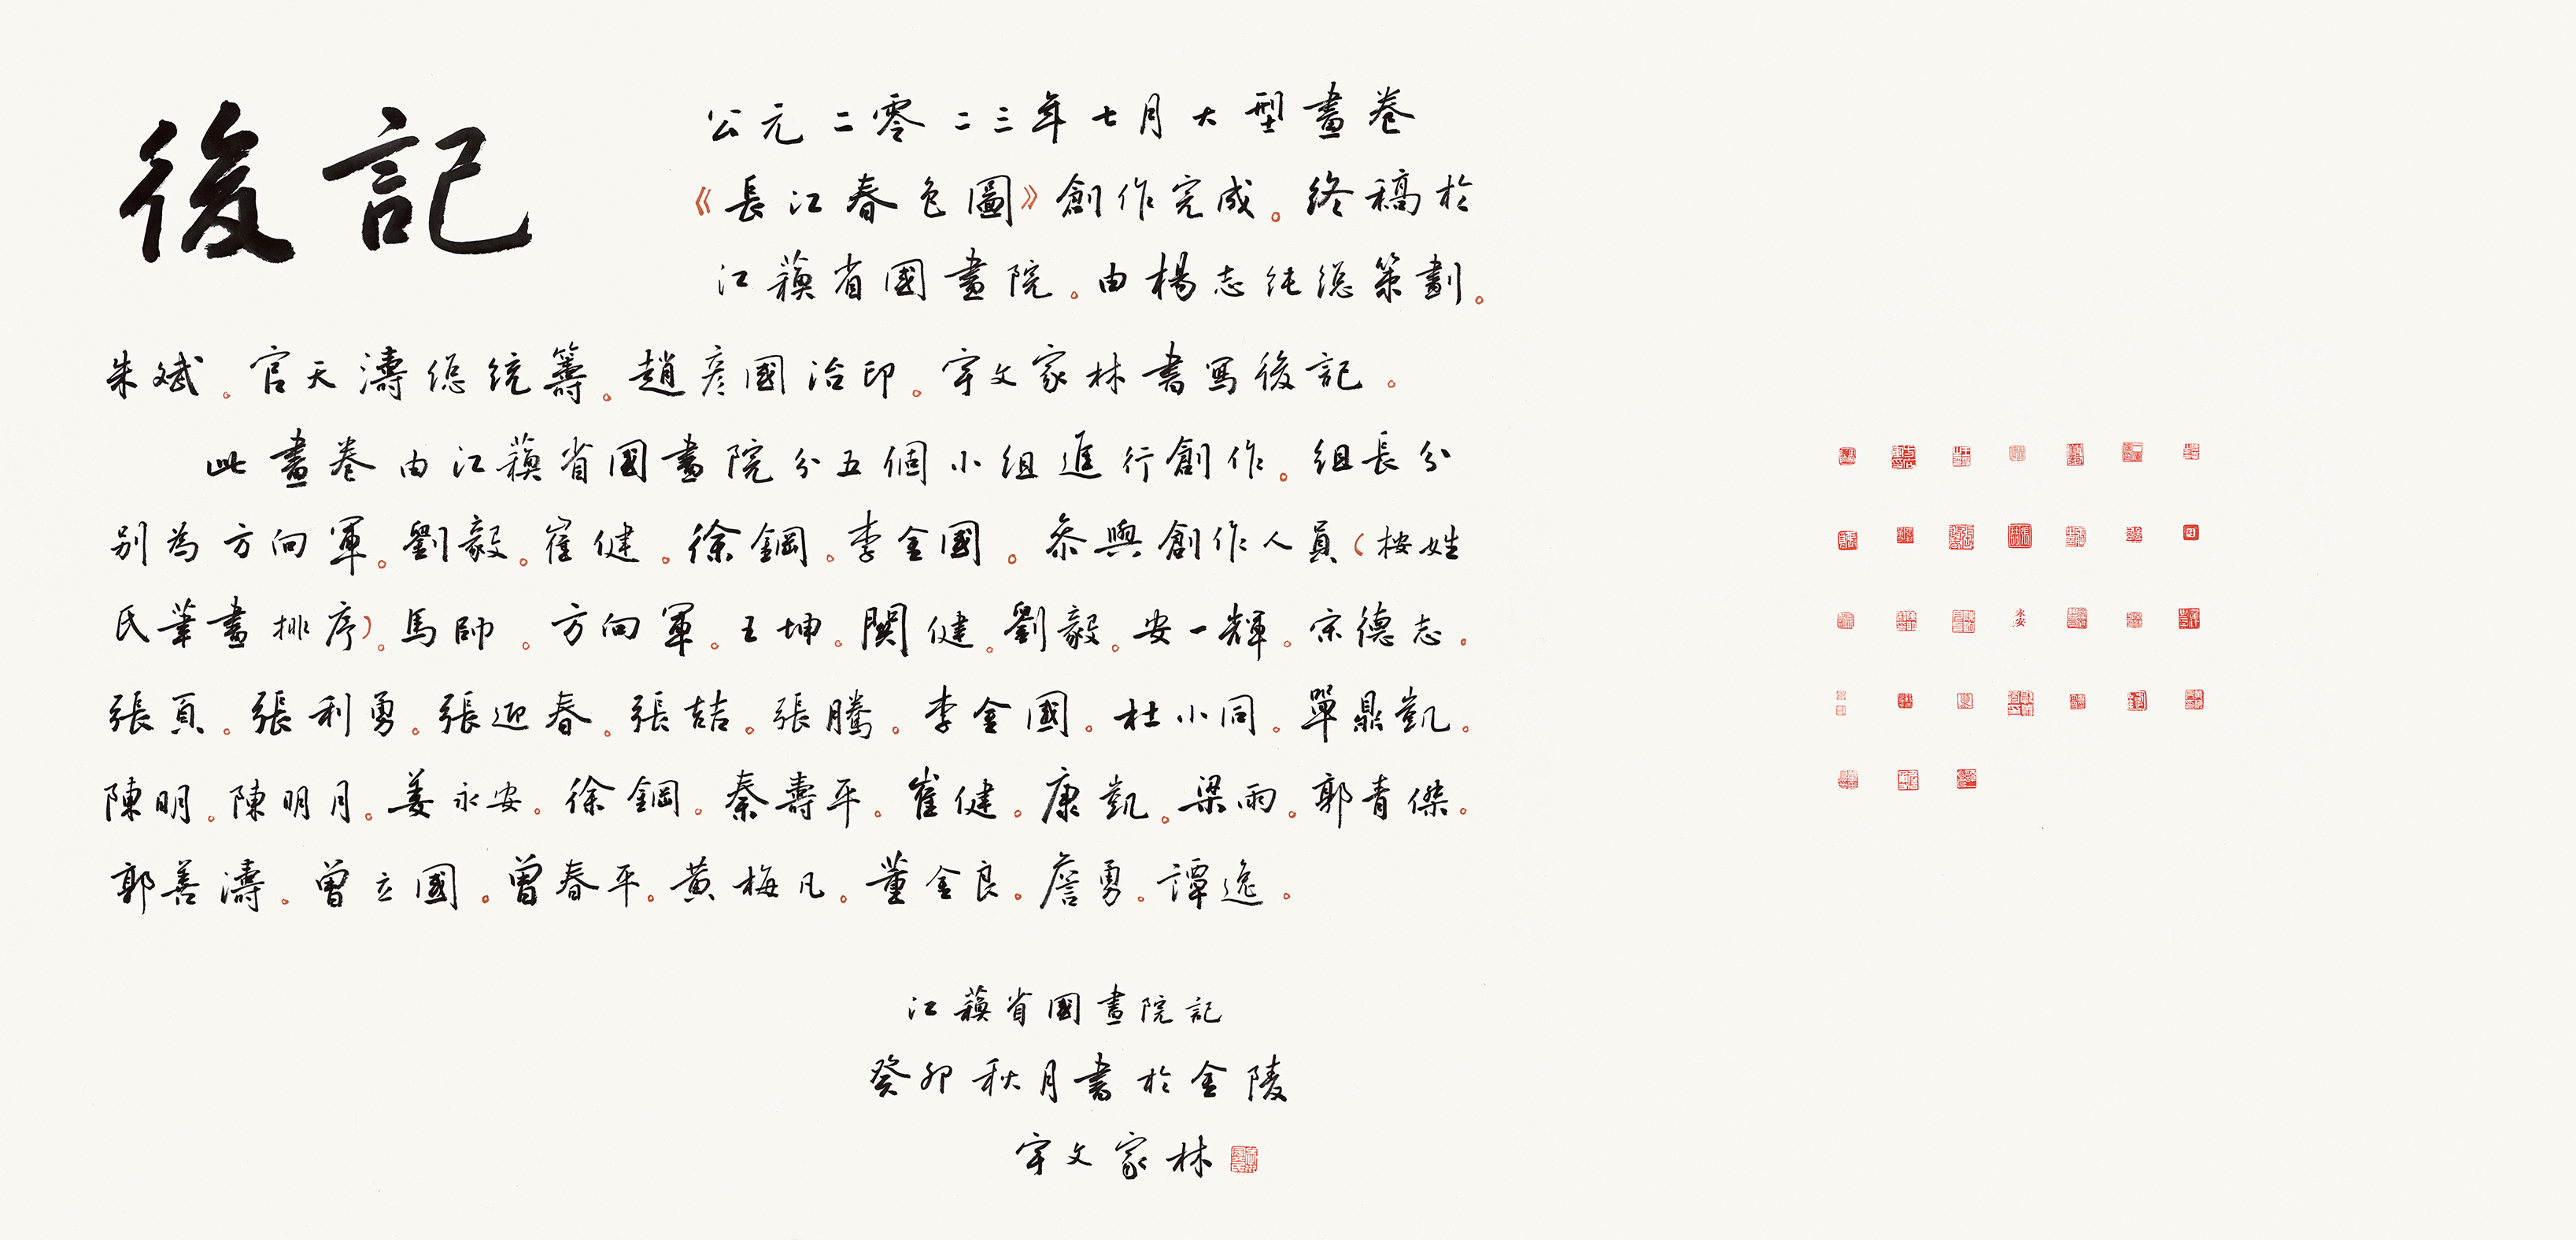 後記
公元二零二三年七月大型畫卷
《長江春色圖》創作完成。終稿於
江蘇省國畫院。由楊志純總策劃。
朱斌。官天濤總統籌。趙彥國治印。宇文家林書寫後記。
此畫卷由江蘇省國畫院分五個小組進行創作。組長分
別為方向軍。劉毅。崔健。徐鋼。李金國。參與創作人員(桉姓
氏筆畫排序)。馬帥。方向軍。王坤。關健。劉毅。安一輝。宗德志。
張頁。張利勇。張迎春。張喆。張騰。李金國。杜小同。單鼎凱。
陳明。陳明月。姜永安。徐鋼。秦壽平。崔健。康凱。梁雨。郭青傑。
郭善濤。曾立國。曾春平。黃梅凡。董金良。詹勇。譚逸。
江蘇省國畫院記
癸卯秋月書於金陵
宇文家林
永安